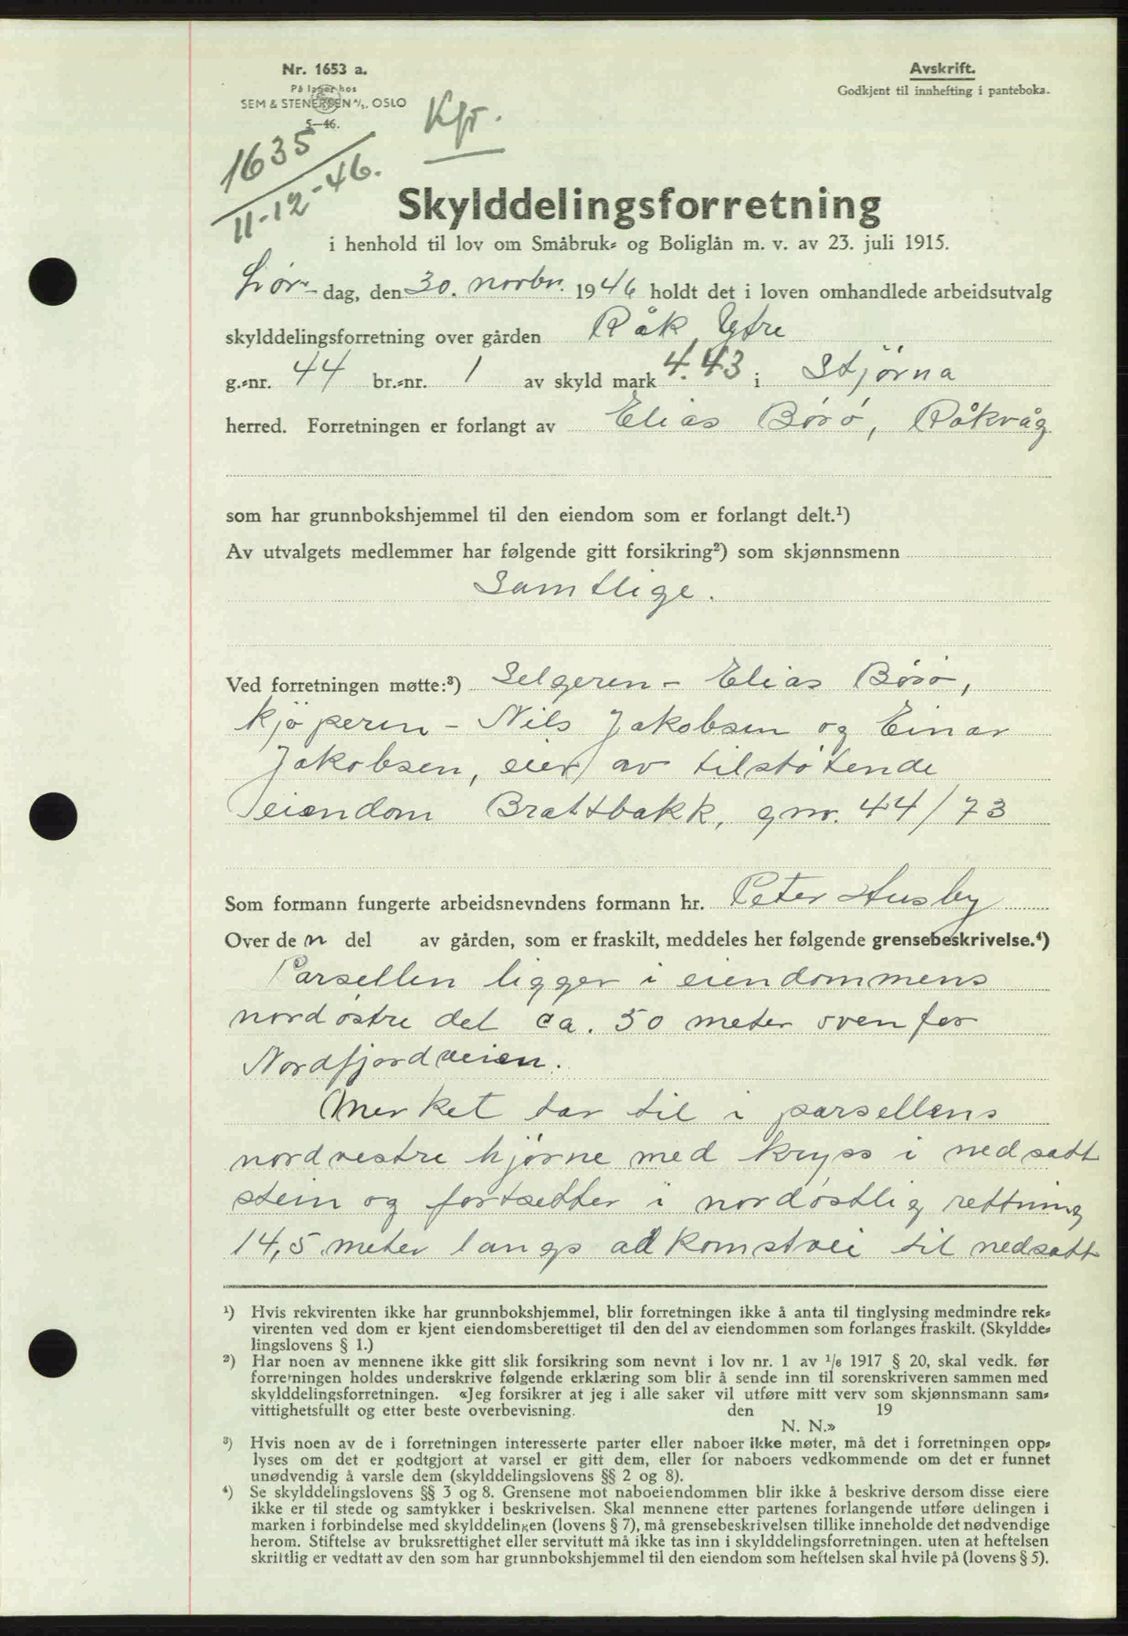 Nr. 1653 a.
På lager hos
SEM & STENERSEN A/S. OSLO
5—46.
Kfr.
1635
11-12-46.
Avskrift.
Godkjent til innhefting i panteboka.
Skylddelingsforretning
i henhold til lov om Småbruk= og Boliglån m. v. av 23. juli 1915.
Lør- dag, den 30. novbr. 1946 holdt det i loven omhandlede arbeidsutvalg
skylddelingsforretning over gården Råk Ytre
g.=nr. 44 br.=nr. 1 av skyld mark 4.43 i Stjørna
herred. Forretningen er forlangt av Elias Børø, Råkvåg
som har grunnbokshjemmel til den eiendom som er forlangt delt.¹)
Av utvalgets medlemmer har følgende gitt forsikring²) som skjønnsmenn
Samtlige.
Ved forretningen møtte:³) Selgeren - Elias Børø,
kjøperen - Nils Jakobsen og Einar
Jakobsen, eier av tilstøtende
eiendom Brattbakk, gnr. 44/73
Som formann fungerte arbeidsnevndens formann hr. Peter Husby
Over den del av gården, som er fraskilt, meddeles her følgende grensebeskrivelse.⁴)
Parsellen ligger i eiendommens
nordøstre del ca. 50 meter ovenfor
Nordfjordveien.
Merket tar til i parsellens
nordvestre hjørne med kryss i nedsatt
stein og fortsetter i nordøstlig rettning
14,5 meter langs adkomstvei til nedsatt
¹) Hvis rekvirenten ikke har grunnbokshjemmel, blir forretningen ikke å anta til tinglysing medmindre rek=
virenten ved dom er kjent eiendomsberettiget til den del av eiendommen som forlanges fraskilt. (Skyldde=
lingslovens § 1.)
²) Har noen av mennene ikke gitt slik forsikring som nevnt i lov nr. 1 av ¹/₆ 1917 § 20, skal vedk. før
forretningen holdes underskrive følgende erklæring som blir å sende inn til sorenskriveren sammen med
skylddelingsforretningen. «Jeg forsikrer at jeg i alle saker vil utføre mitt verv som skjønnsmann sam=
vittighetsfullt og etter beste overbevisning. den 19
N. N.»
³) Hvis noen av de i forretningen interesserte parter eller naboer ikke møter, må det i forretningen opp=
lyses om det er godtgjort at varsel er gitt dem, eller for naboers vedkommende om det er funnet
unødvendig å varsle dem (skylddelingslovens §§ 2 og 8).
⁴) Se skylddelingslovens §§ 3 og 8. Grensene mot naboeiendommen blir ikke å beskrive dersom disse eiere
ikke er til stede og samtykker i beskrivelsen. Skal mennene etter partenes forlangende utføre delingen i
marken i forbindelse med skylddelingen (lovens § 7), må grensebeskrivelsen tillike inneholde det nødvendige
herom. Stiftelse av bruksrettighet eller servitutt må ikke tas inn i skylddelingsforretningen. uten at heftelsen
skriftlig er vedtatt av den som har grunnbokshjemmel til den eiendom som heftelsen skal hvile på (lovens § 5).